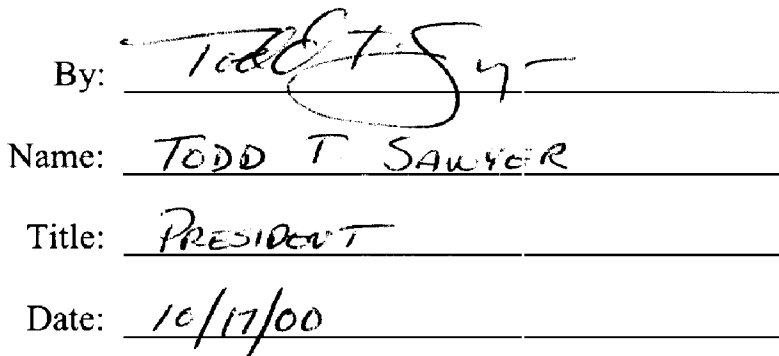 By: Todd T Sawyer
Name: TODD T. SAWYER
Title: PRESIDENT
Date: 10/17/00